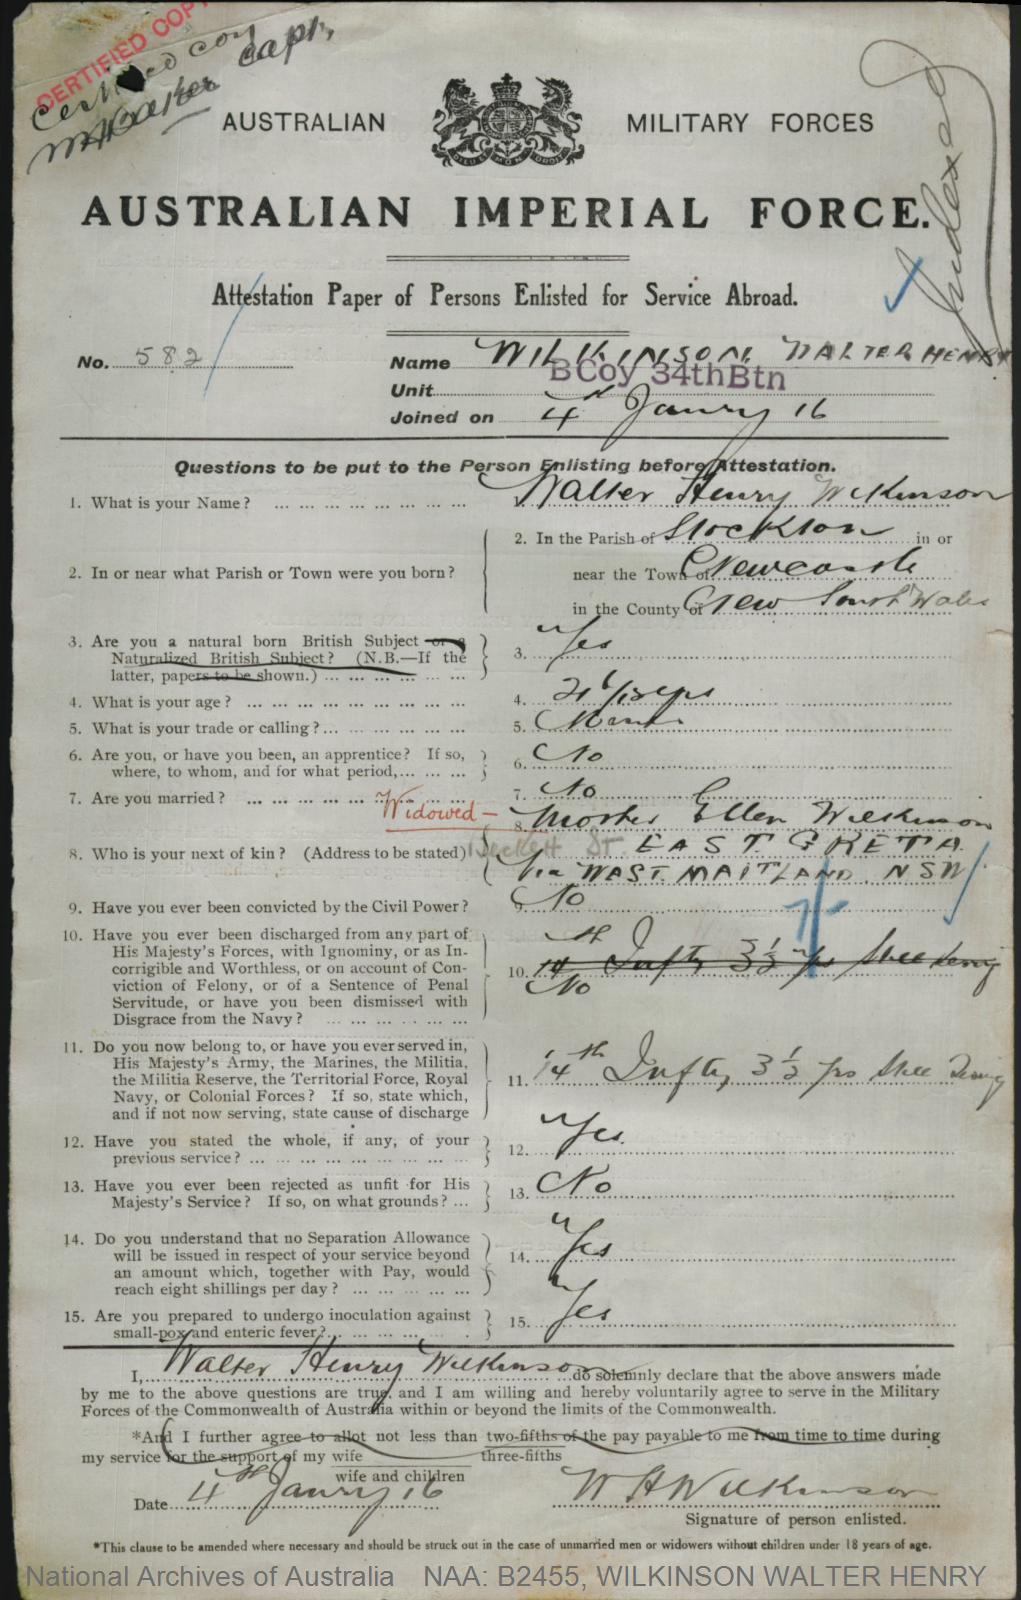 CERTIFIED COPY
Certified copy
Capt,
Indexed
AUSTRALIAN MILITARY FORCES
AUSTRALIAN IMPERIAL FORCE.
Attestation Paper of Persons Enlisted for Service Abroad.
No. 582 Name WILKINSON, WALTER HENRY
Unit B Coy 34th Btn
Joined on 4th Janry 16
Questions to be put to the Person Enlisting before Attestation.
1. What is your Name? ... Walter Henry Wilkinson
2. In or near what Parish or Town were you born?
2. In the Parish of Stockton in or
near the Town of Newcastle
in the County of New South Wales
3. Are you a natural born British Subject or a
Naturalized British Subject? (N.B.—If the
latter, papers to be shown.) ... 3. Yes
4. What is your age? ... 4. 21 6/12 yrs
5. What is your trade or calling? ... 5.
6. Are you, or have you been, an apprentice? If so,
where, to whom, and for what period, ... 6. No
7. Are you married? ... 7. No
Widowed —
8. Who is your next of kin? (Address to be stated)
8. Mother Ellen Wilkinson
Beckett St. EAST GRETA
Via WAST. MAITLAND. NSW
9. Have you ever been convicted by the Civil Power? 9. No
10. Have you ever been discharged from any part of
His Majesty's Forces, with Ignominy, or as In-
corrigible and Worthless, or on account of Con-
viction of Felony, or of a Sentence of Penal
Servitude, or have you been dismissed with
Disgrace from the Navy? ...
10. 14th Infty 3½ yrs Still Serving
No
11. Do you now belong to, or have you ever served in,
His Majesty's Army, the Marines, the Militia,
the Militia Reserve, the Territorial Force, Royal
Navy, or Colonial Forces? If so, state which,
and if not now serving, state cause of discharge
11. 14th Infty, 3½ yrs Still Serving
12. Have you stated the whole, if any, of your
previous service? ... 12. Yes.
13. Have you ever been rejected as unfit for His
Majesty's Service? If so, on what grounds? ... 13. No
14. Do you understand that no Separation Allowance
will be issued in respect of your service beyond
an amount which, together with Pay, would
reach eight shillings per day? ... 14. Yes
15. Are you prepared to undergo inoculation against
small-pox and enteric fever? ... 15. Yes
I, Walter Henry Wilkinson do solemnly declare that the above answers made
by me to the above questions are true, and I am willing and hereby voluntarily agree to serve in the Military
Forces of the Commonwealth of Australia within or beyond the limits of the Commonwealth.
*And I further agree to allot not less than two-fifths of the pay payable to me from time to time during
my service for the support of my wife three-fifths
wife and children
Date 4th Janry 16 W H Wilkinson
Signature of person enlisted.
*This clause to be amended where necessary and should be struck out in the case of unmarried men or widowers without children under 18 years of age.
National Archives of Australia NAA: B2455, WILKINSON WALTER HENRY